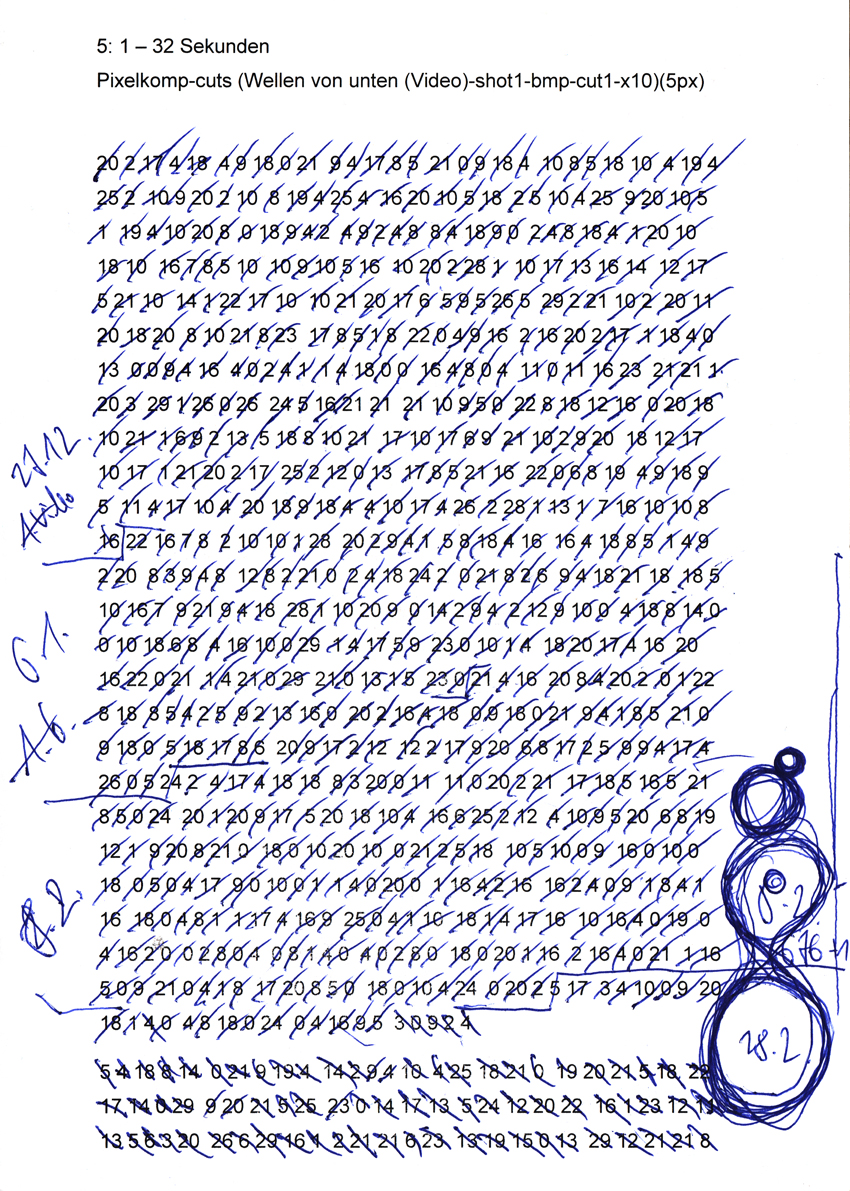 5: 1 – 32 Sekunden
Pixelkomp-cuts (Wellen von unten (Video)-shot1-bmp-cut1-x10)(5px)
20 2 17 4 18 4 9 18 0 21 9 4 17 8 5 21 0 9 18 4 10 8 5 18 10 4 19 4
25 2 10 9 20 2 10 8 19 4 25 4 16 20 10 5 18 2 5 10 4 25 9 20 10 5
1 19 4 10 20 8 0 18 9 4 2 4 9 2 4 8 8 4 18 9 0 2 4 8 18 4 1 20 10
18 10 16 7 8 5 10 10 9 10 5 16 10 20 2 28 1 10 17 13 16 14 12 17
5 21 10 14 1 22 17 10 10 21 20 17 6 5 9 5 26 5 29 2 21 10 2 20 11
20 18 20 8 10 21 8 23 17 8 5 1 8 22 0 4 9 16 2 16 20 2 17 1 18 4 0
13 0 0 9 4 16 4 0 2 4 1 1 4 18 0 0 16 4 8 0 4 11 0 11 16 23 21 21 1
20 3 29 1 26 0 26 24 5 16 21 21 21 10 9 5 0 22 8 18 12 16 0 20 18
10 21 1 6 9 2 13 5 18 8 10 21 17 10 17 6 9 21 10 2 9 20 18 12 17
10 17 1 21 20 2 17 25 2 12 0 13 17 8 5 21 16 22 0 6 8 19 4 9 18 9
5 11 4 17 10 4 20 18 9 18 4 4 10 17 4 26 2 28 1 13 1 7 16 10 10 8
16 22 16 7 8 2 10 10 1 28 20 2 9 4 1 5 8 18 4 16 16 4 18 8 5 1 4 9
2 20 8 3 9 4 8 12 8 2 21 0 2 4 18 24 2 0 21 8 26 9 4 18 21 18 18 5
10 16 7 9 21 9 4 18 28 1 10 20 9 0 14 2 9 4 2 12 9 10 0 4 18 8 14 0
0 10 18 6 8 4 16 10 0 29 1 4 17 5 9 23 0 10 1 4 18 20 17 4 16 20
16 22 0 21 1 4 21 0 29 21 0 13 1 5 23 0 21 4 16 20 8 4 20 2 0 1 22
8 18 8 5 4 2 5 9 2 13 16 0 20 2 16 4 18 0 9 18 0 21 9 4 18 5 21 0
9 18 0 5 18 17 8 6 20 9 17 2 12 12 2 17 9 20 6 8 17 2 5 9 9 4 17 4
26 0 5 24 2 4 17 4 18 18 8 3 20 0 11 11 0 20 2 21 17 18 5 16 5 21
8 5 0 24 20 1 20 9 17 5 20 18 10 4 16 6 25 2 12 4 10 9 5 20 6 8 19
12 1 9 20 8 21 0 18 0 10 20 10 0 21 2 5 18 10 5 10 0 9 16 0 10 0
18 0 5 0 4 17 9 0 10 0 1 1 4 0 20 0 1 16 4 2 16 16 2 4 0 9 18 4 1
16 18 0 4 8 1 1 17 4 16 9 25 0 4 1 16 18 1 4 17 16 10 16 4 0 19 0
4 16 2 0 0 2 8 0 4 0 8 1 4 0 4 0 2 8 0 18 0 20 1 16 2 16 4 0 21 1 16
5 0 9 21 0 4 18 17 20 8 5 0 18 0 10 4 24 0 20 2 5 17 3 4 10 0 9 20
18 1 4 0 4 8 18 0 24 0 4 16 9 5 3 0 9 2 4
5 4 18 8 14 0 21 9 19 4 14 2 9 4 10 4 25 18 21 0 19 20 21 5 18 22
17 14 0 29 9 20 21 5 25 23 0 14 17 13 5 24 12 20 22 16 1 23 12 11
13 5 6 3 20 26 6 29 16 1 2 21 21 6 23 13 19 15 0 13 29 12 21 21 8
6.1.
A.6.
8.2.
28.2